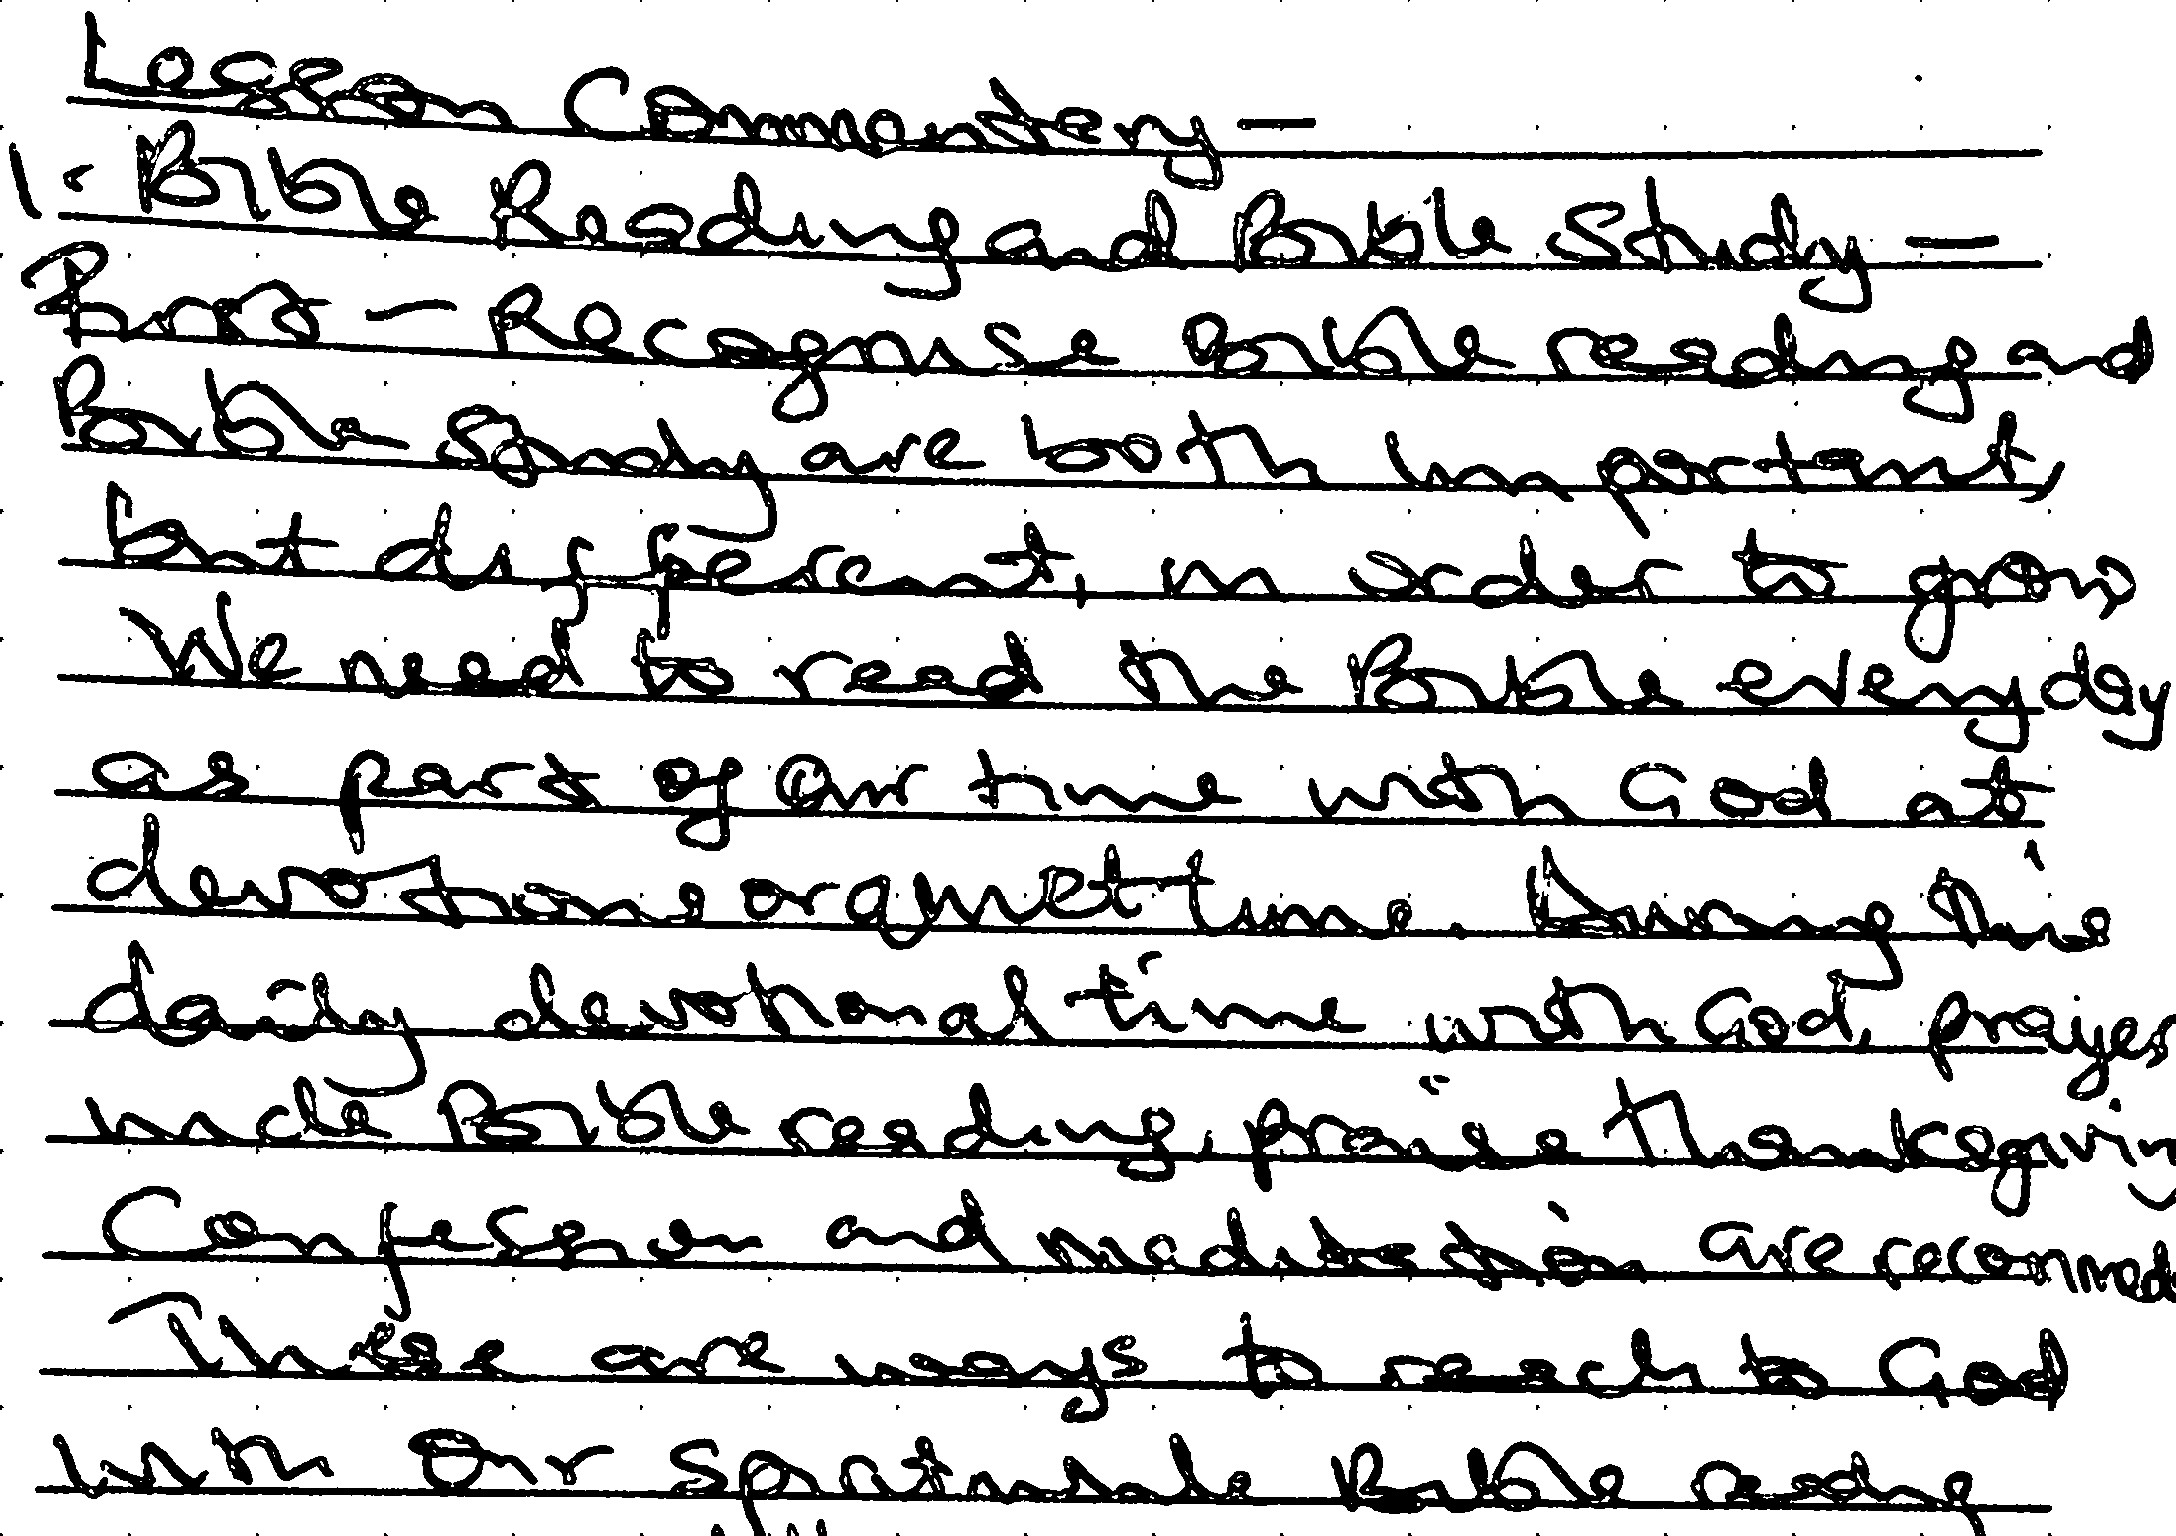 Lesson Commentery -
1. Bible Reading and Bible Study -
First - Recognise Bible reading and
Bible Study are both important,
but different, in order to grow
We need to read the Bible every day
as part of our time with God at
devotions or quiet time. During this
daily devotional time with God, prayer
incle Bible reading, praise thanksgiving
Confession and meditation are recommed
These are ways to reach to God
with our Bible reading